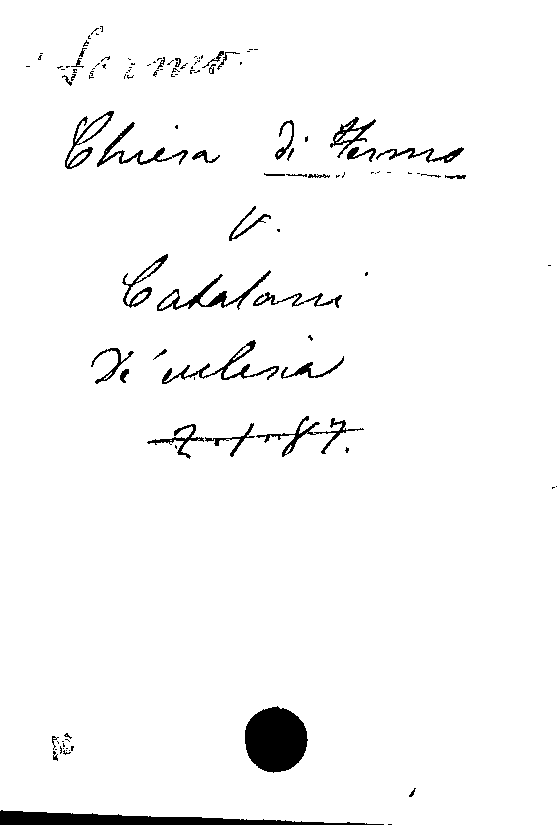 fermo.
Chiesa di Fermo
v.
Catalani
De' eulesia
2.1.87.